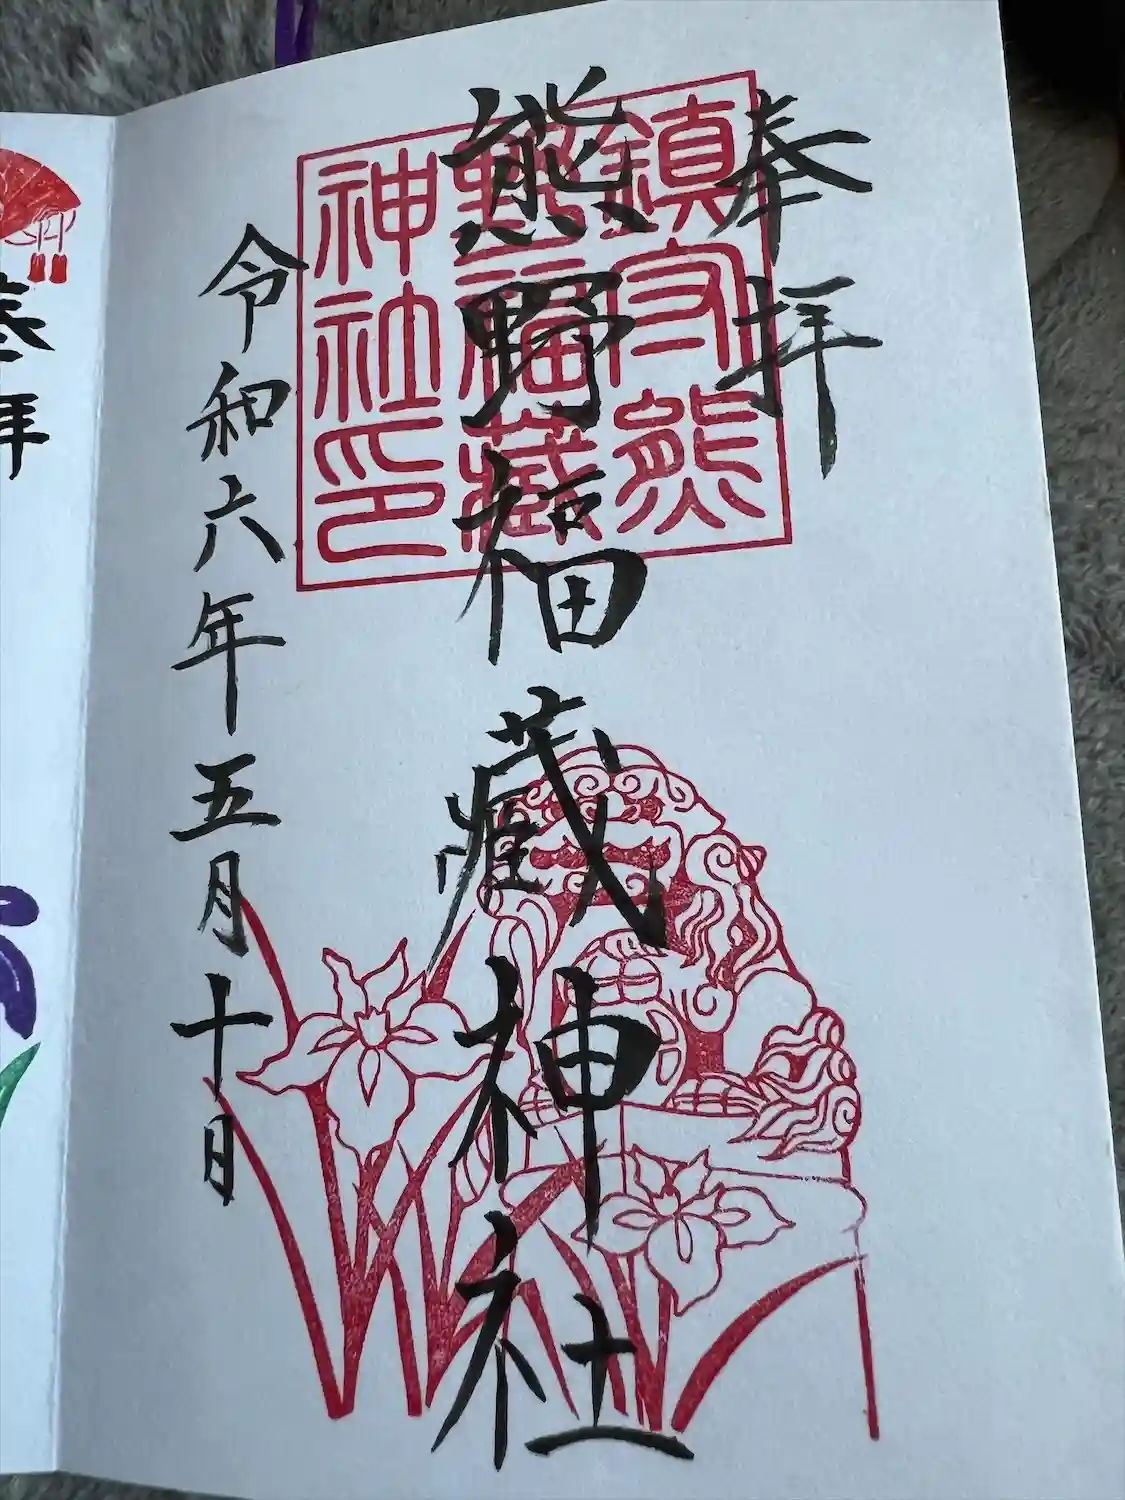 奉拝
熊野福藏神社
令和六年五月十日
鎮守熊
野福藏
神社印
奉拝